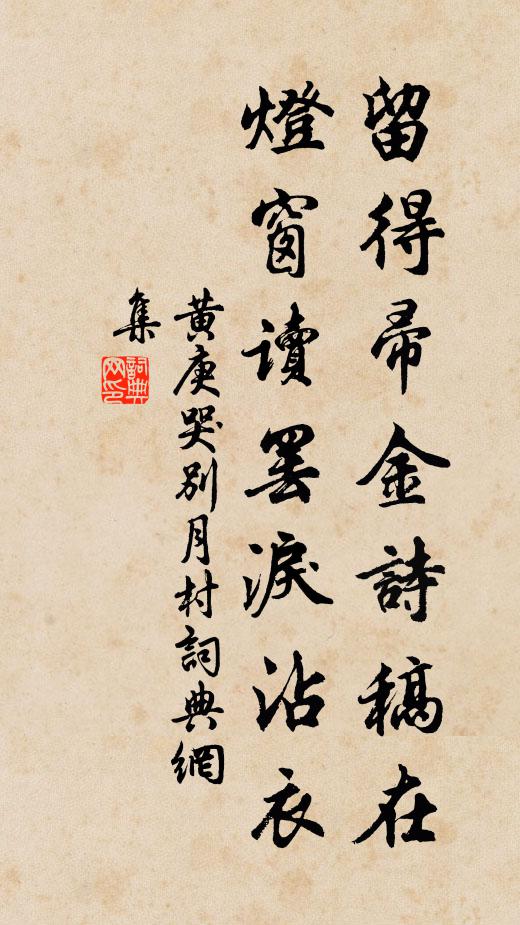 留得帚金詩稿在
燈窗讀罷淚沾衣
黃庚哭別月村詞典網
集
詞典网印